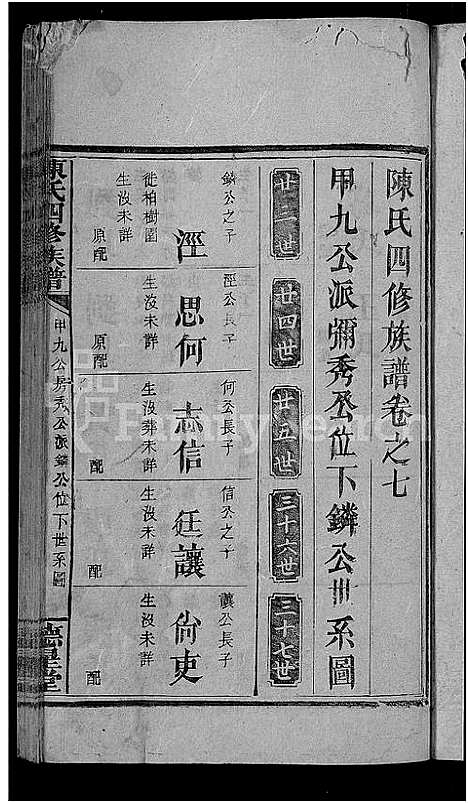 陳氏四修族譜卷之七
甲九公派彌秀公位下鏻公世系圖
廿三世 廿四世 廿五世 三十六世 三十七世
鏻公之子
涇
徙柏樹園
生沒未詳
原配
涇公長子
思何
生沒未詳
原配
何公長子
志信
生沒葬未詳
配
信公之子
廷讓
生沒未詳
配
讓公長子
尙吏
生沒未詳
陳氏四修族譜
甲九公房秀公派鏻公位下世系圖
德星堂